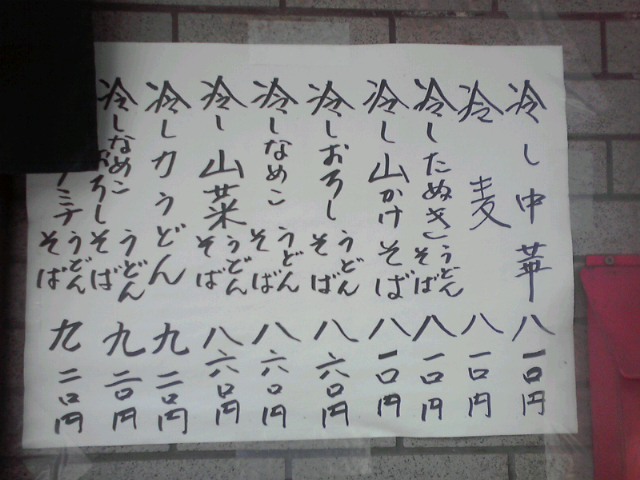 冷し中華 八一〇円
冷麦 八一〇円
冷したぬき うどん そば 八一〇円
冷し山かけ そば 八一〇円
冷しおろし うどん そば 八六〇円
冷しなめこ うどん そば 八六〇円
冷し山菜 うどん そば 八六〇円
冷し力うどん 九二〇円
冷しなめこ おろし うどん そば 九二〇円
うどん そば 九二〇円